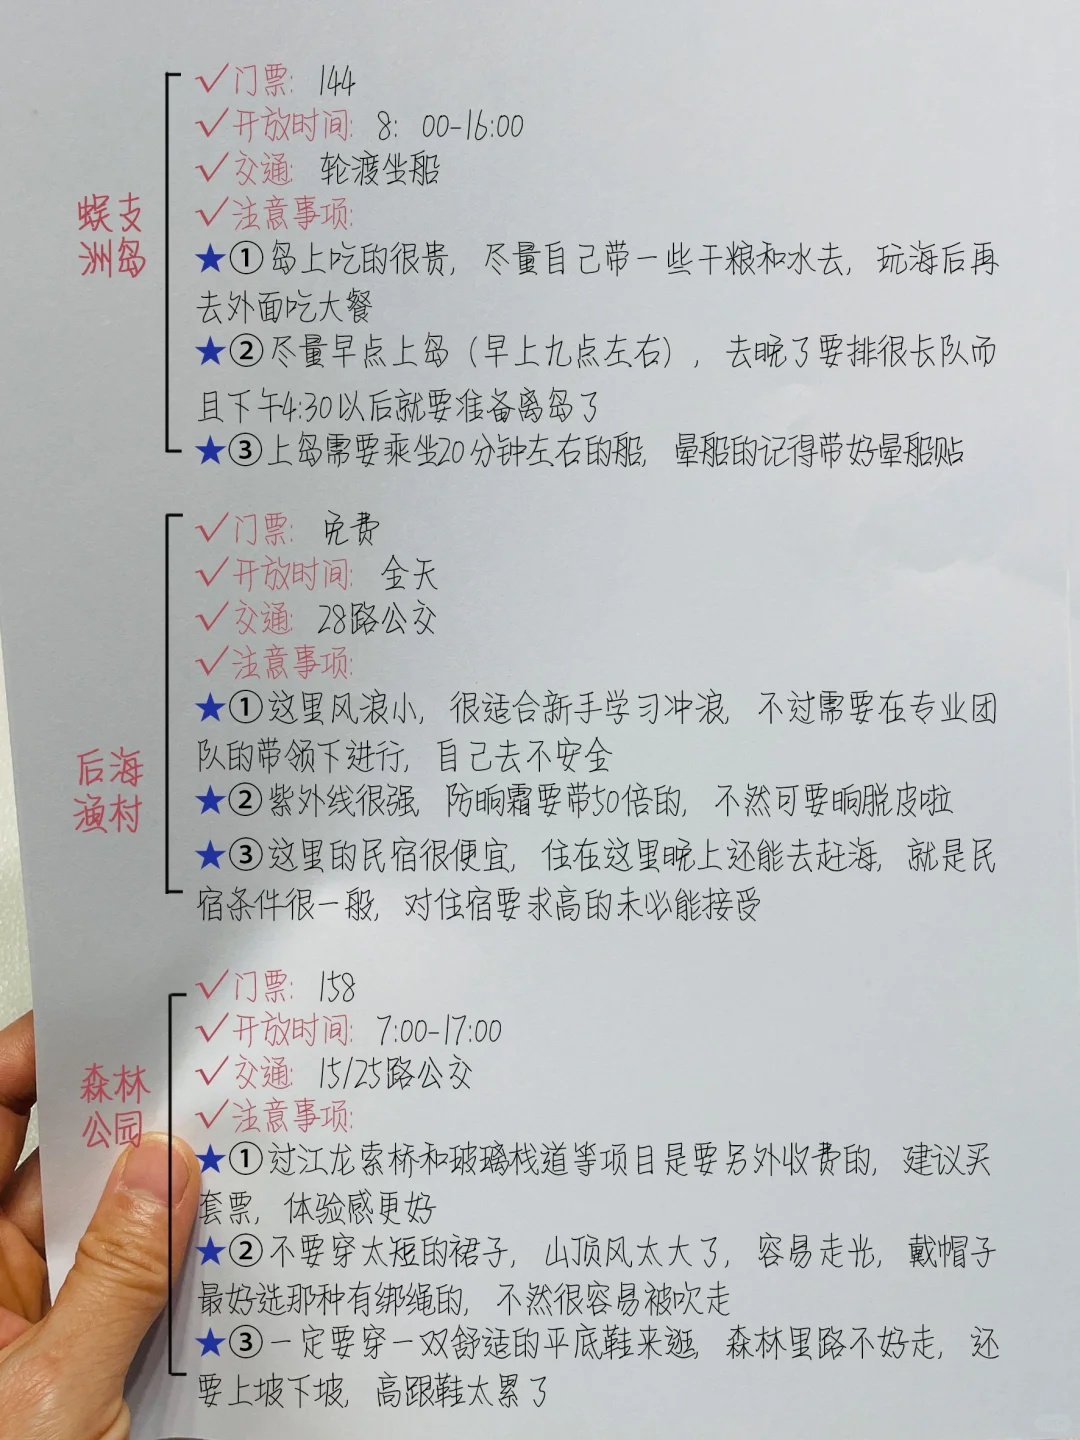 蜈支
洲岛
✓门票: 144
✓开放时间: 8: 00-16:00
✓交通: 轮渡坐船
✓注意事项:
★①岛上吃的很贵, 尽量自己带一些干粮和水去, 玩海后再
去外面吃大餐
★②尽量早点上岛(早上九点左右), 去晚了要排很长队而
且下午4:30以后就要准备离岛了
★③上岛需要乘坐20分钟左右的船, 晕船的记得带好晕船贴
后海
渔村
✓门票: 免费
✓开放时间: 全天
✓交通: 28路公交
✓注意事项:
★①这里风浪小, 很适合新手学习冲浪, 不过需要在专业团
队的带领下进行, 自己去不安全
★②紫外线很强, 防晒霜要带50倍的, 不然可要晒脱皮啦
★③这里的民宿很便宜, 住在这里晚上还能去赶海, 就是民
宿条件很一般, 对住宿要求高的未必能接受
森林
公园
✓门票: 158
✓开放时间: 7:00-17:00
✓交通: 15/25路公交
✓注意事项:
★①过江龙索桥和玻璃栈道等项目是要另外收费的, 建议买
套票, 体验感更好
★②不要穿太短的裙子, 山顶风太大了, 容易走光, 戴帽子
最好选那种有绑绳的, 不然很容易被吹走
★③一定要穿一双舒适的平底鞋来逛, 森林里路不好走, 还
要上坡下坡, 高跟鞋太累了